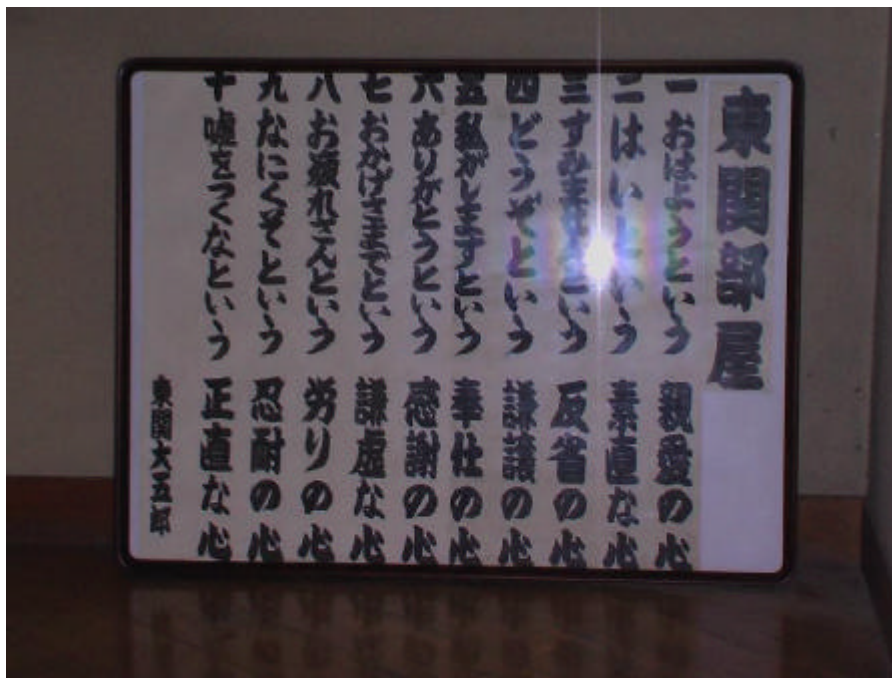 東関部屋
一 おはようという 親愛の心
二 はいという 素直な心
三 すみませんという 反省の心
四 どうぞという 謙譲の心
五 私がしますという 奉仕の心
六 ありがとうという 感謝の心
七 おかげさまでという 謙虚な心
八 お疲れさんという 労りの心
九 なにくそという 忍耐の心
十 嘘をつくなという 正直な心
東関大五郎